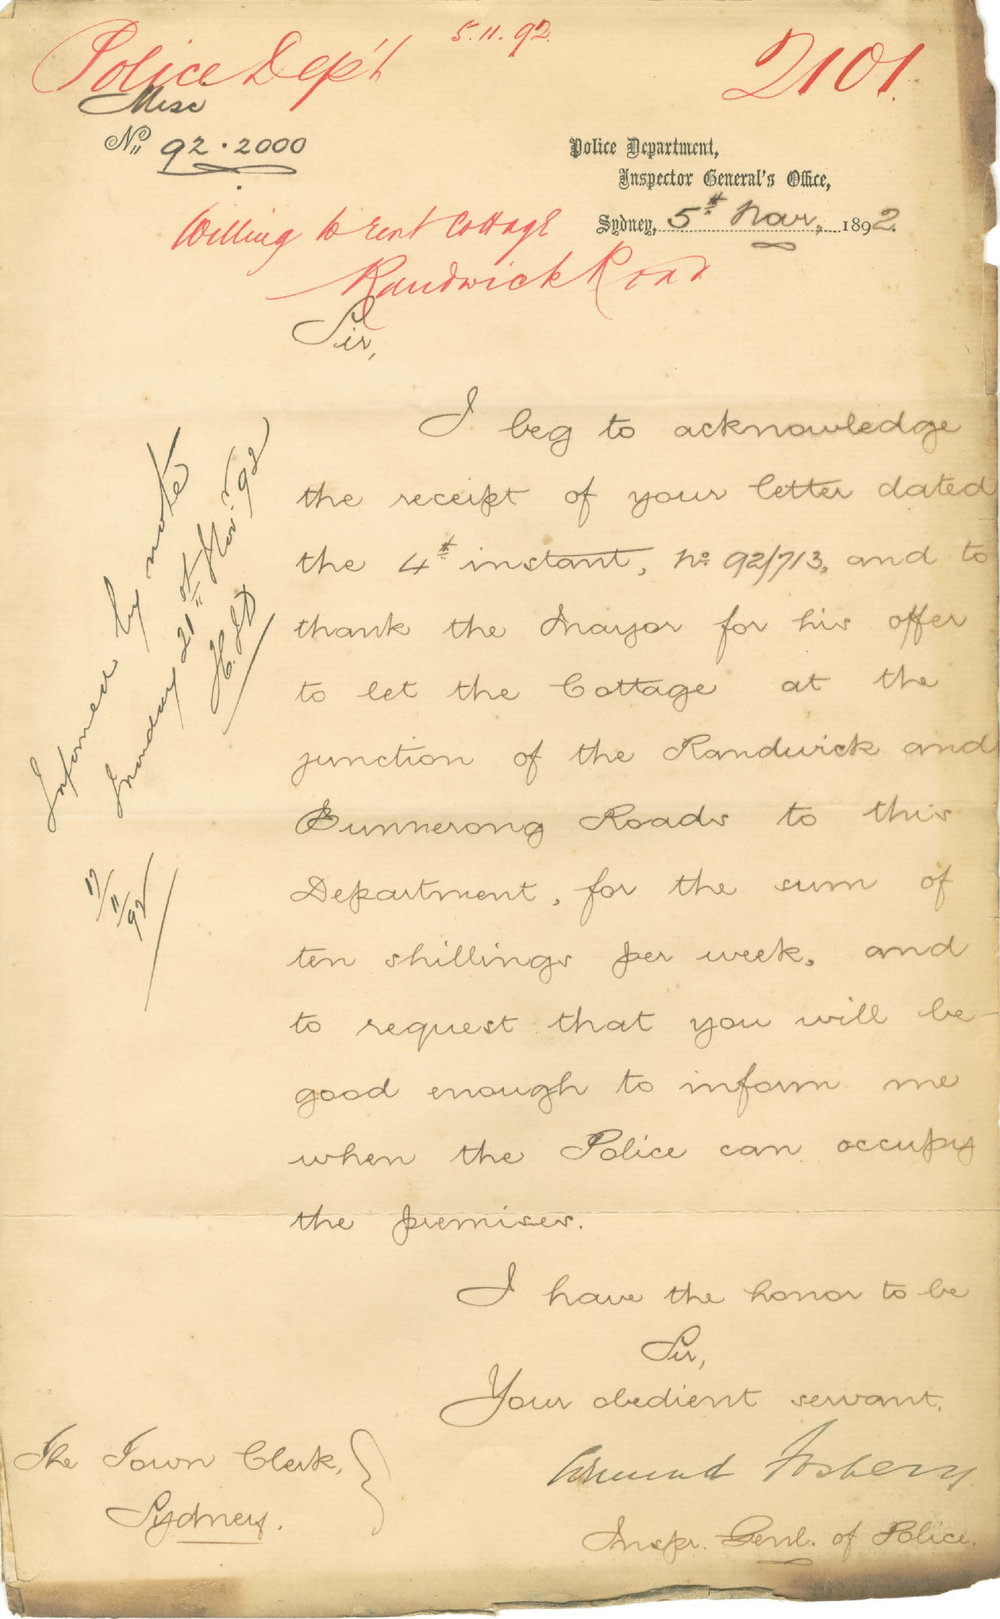 Police Dep't
5.11.92.
2101.
Misc
No. 92.2000
Police Department,
Inspector General's Office,
Sydney, 5th Nov., 1892.
Willing to rent Cottage
Randwick Road
Sir,
I beg to acknowledge
the receipt of your letter dated
the 4th instant, No. 92/713, and to
thank the Mayor for his offer
to let the Cottage at the
junction of the Randwick and
Bunnerong Roads to this
Department, for the sum of
ten shillings per week, and
to request that you will be
good enough to inform me
when the Police can occupy
the premises.
I have the honor to be
Sir,
Your obedient servant,
Edmund Fosbery
Inspr. Genl. of Police.
The Town Clerk,
Sydney.
Informed by note
Monday 21st Nov. 92
17/11/92